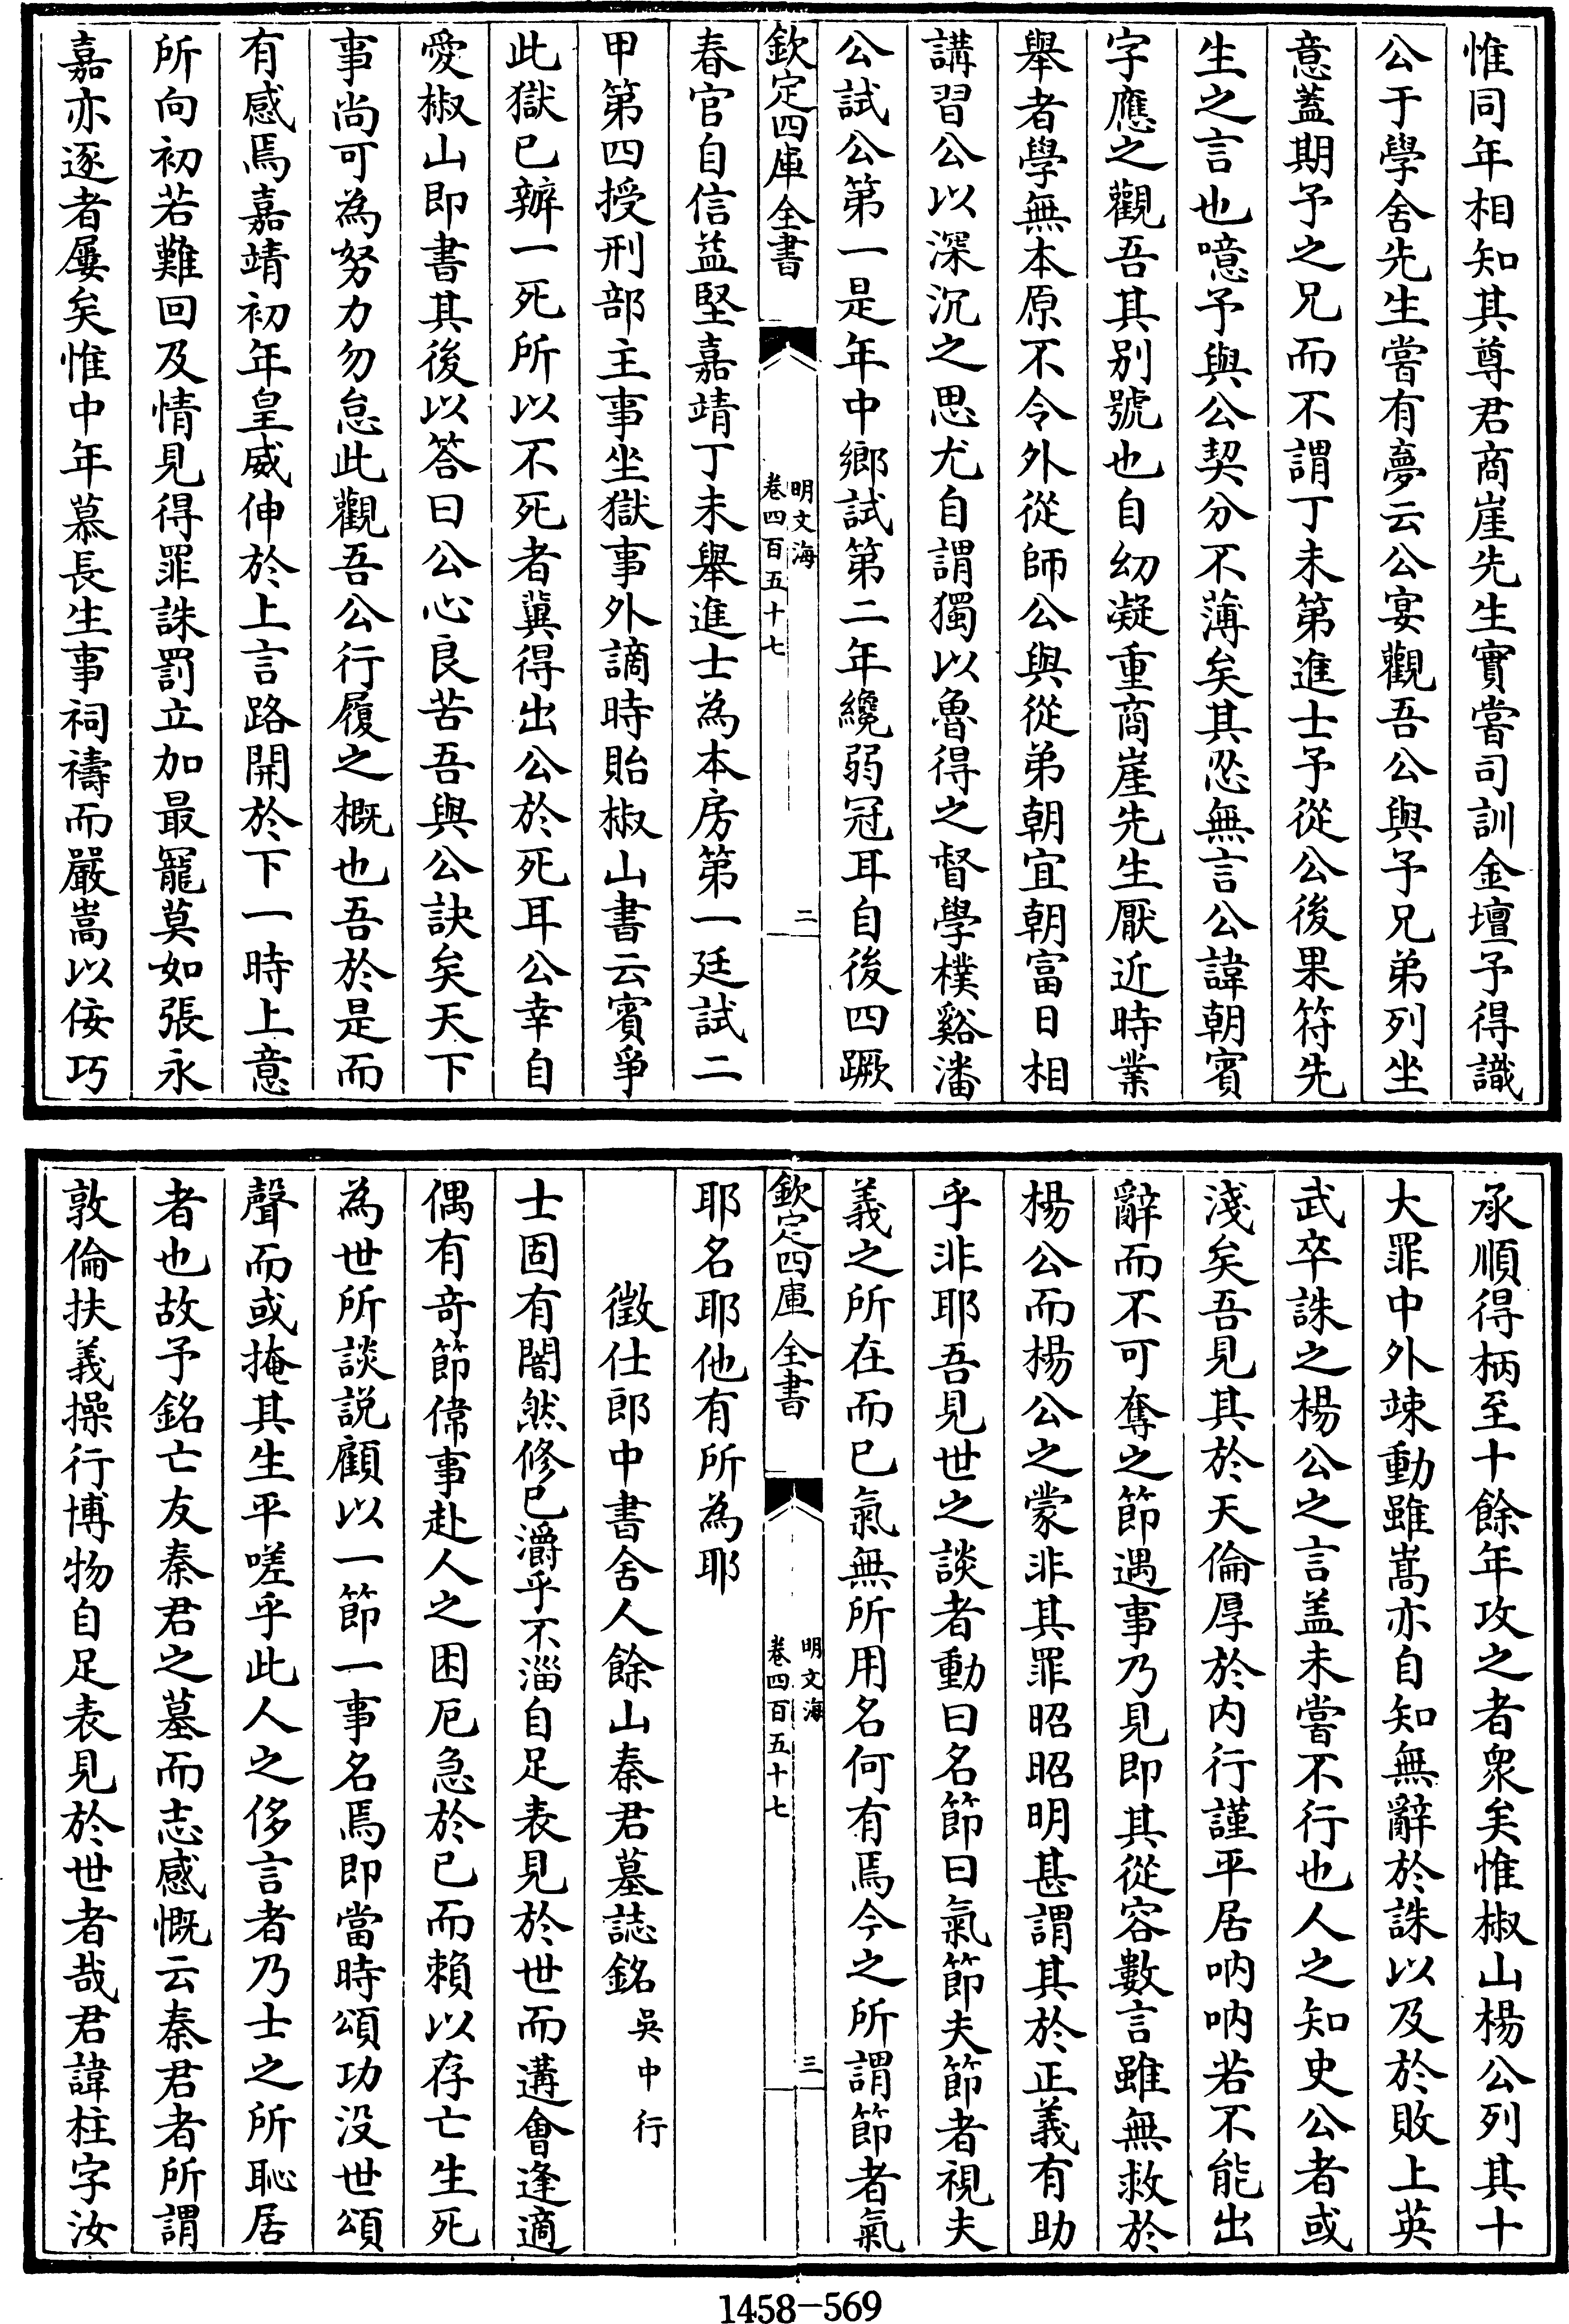 惟同年相知其尊君商崖先生實嘗司訓金壇予得識
公于學舍先生嘗有夢云公宴觀吾公與予兄弟列坐
意蓋期予之兄而不謂丁未第進士予從公後果符先
生之言也噫予與公契分不薄矣其忍無言公諱朝賓
字應之觀吾其别號也自幼凝重商崖先生厭近時業
舉者學無本原不令外從師公與從弟朝宜朝富日相
講習公以深沉之思尤自謂獨以魯得之督學樸谿潘
公試公第一是年中鄉試第二年纔弱冠耳自後四蹶
欽定四庫全書
明文海
卷四百五十七
二
春官自信益堅嘉靖丁未舉進士為本房第一廷試二
甲第四授刑部主事坐獄事外謫時貽椒山書云賓爭
此獄已辦一死所以不死者冀得出公於死耳公幸自
愛椒山即書其後以答曰公心良苦吾與公訣矣天下
事尚可為努力勿怠此觀吾公行履之概也吾於是而
有感焉嘉靖初年皇威伸於上言路開於下一時上意
所向初若難回及情見得罪誅罰立加最寵莫如張永
嘉亦逐者屢矣惟中年慕長生事祠禱而嚴嵩以佞巧
承順得柄至十餘年攻之者衆矣惟椒山楊公列其十
大罪中外竦動雖嵩亦自知無辭於誅以及於敗上英
武卒誅之楊公之言盖未嘗不行也人之知史公者或
淺矣吾見其於天倫厚於内行謹平居吶吶若不能出
辭而不可奪之節遇事乃見即其從容數言雖無救於
楊公而楊公之蒙非其罪昭昭明甚謂其於正義有助
乎非耶吾見世之談者動曰名節曰氣節夫節者視夫
義之所在而已氣無所用名何有焉今之所謂節者氣
欽定四庫全書
明文海
卷四百五十七
三
耶名耶他有所為耶
徵仕郎中書舍人餘山秦君墓誌銘 吳中行
士固有闇然修已灂乎不淄自足表見於世而遘會逢適
偶有竒節偉事赴人之困厄急於已而賴以存亡生死
為世所談說顧以一節一事名焉即當時頌功没世頌
聲而或掩其生平嗟乎此人之侈言者乃士之所恥居
者也故予銘亡友秦君之墓而志感慨云秦君者所謂
敦倫扶義操行博物自足表見於世者哉君諱柱字汝
1458-569